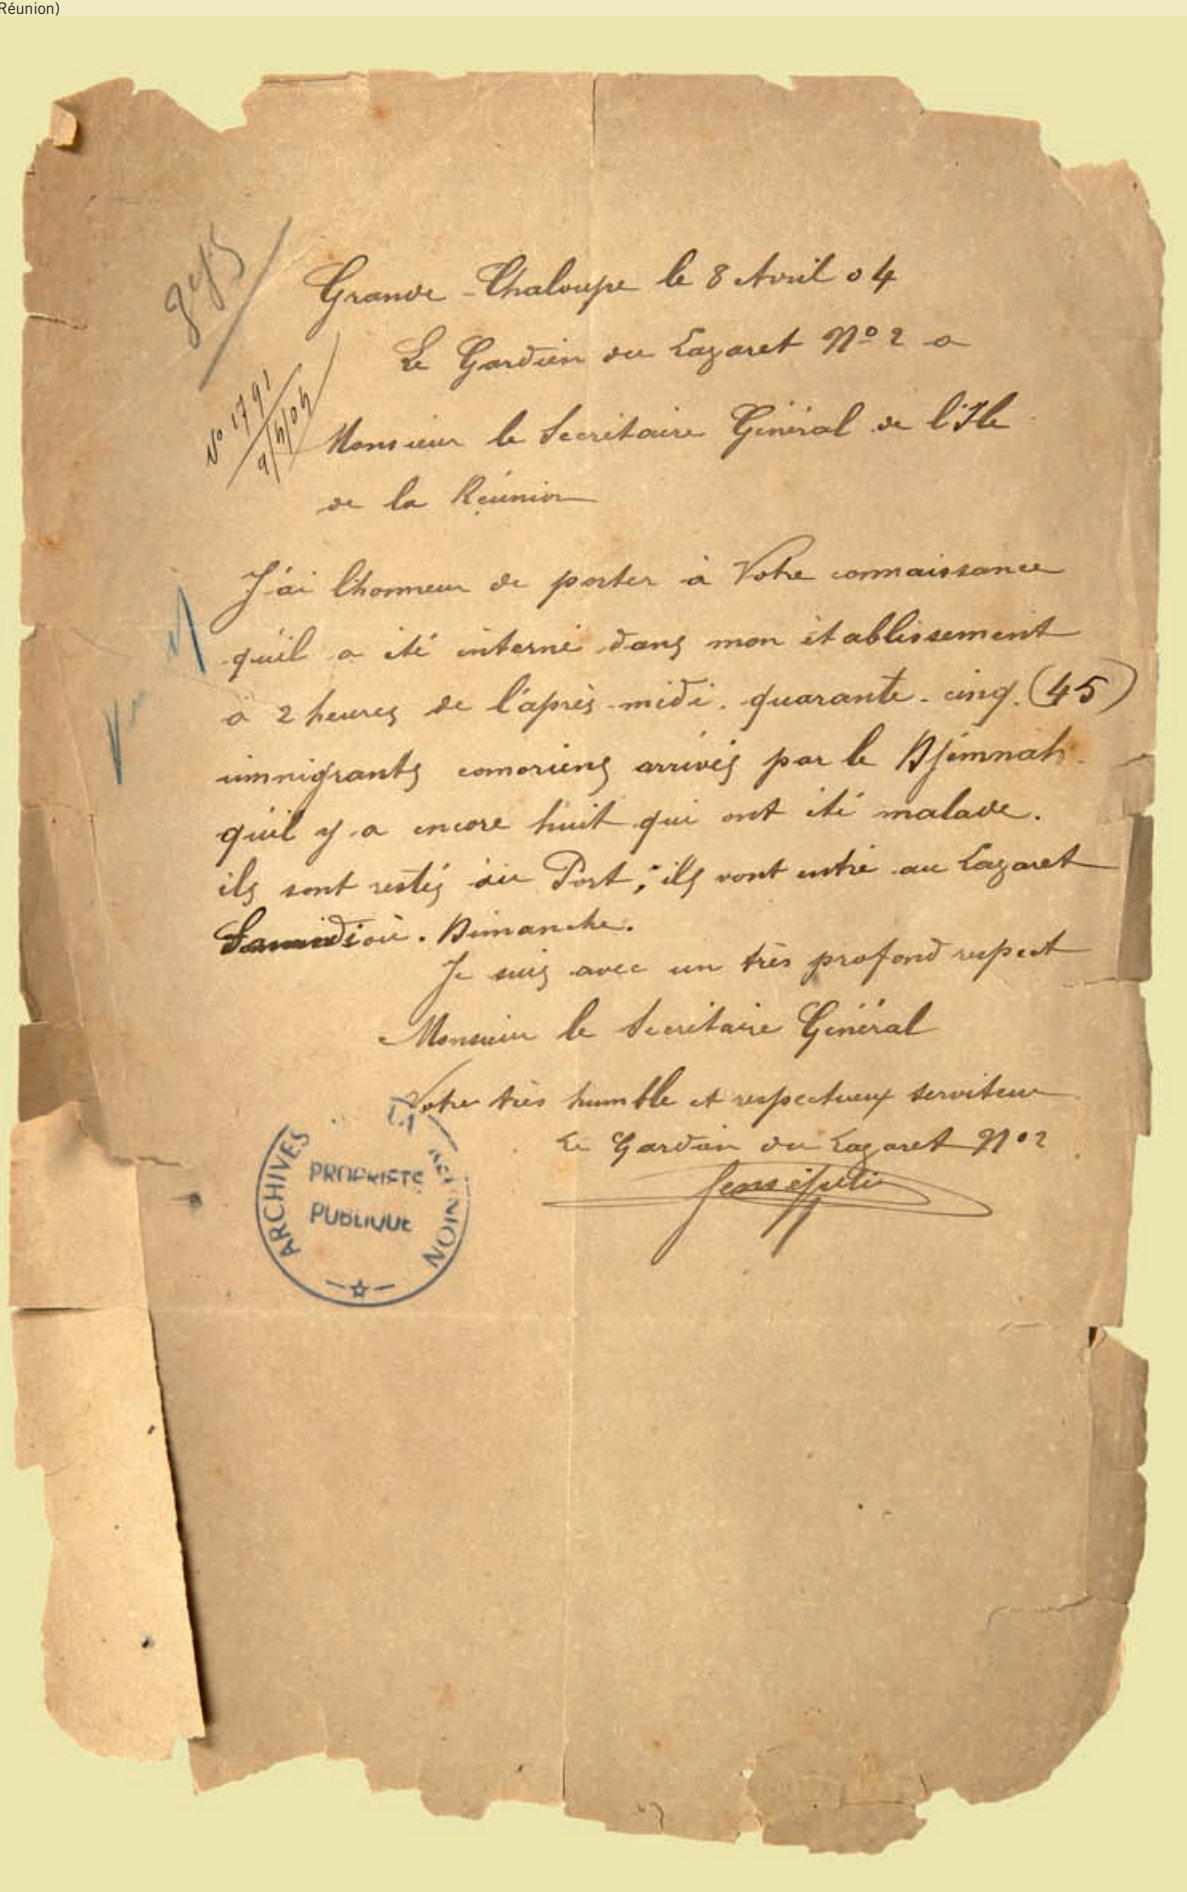 Réunion)
Grande-Chaloupe le 8 Avril 04
Le Gardien du Lazaret Nº 2 a
Nº 1791
9/4/04
Monsieur le Secrétaire Général de l'Ile
de la Réunion
J'ai l'honneur de porter à Votre connaissance
qu'il a été interné dans mon établissement
à 2 heures de l'après-midi. quarante-cinq. (45)
immigrants comoriens arrivés par le Djemnah.
qu'il y a encore huit qui ont été malade.
ils sont restés au Port, ils vont entré au Lazaret
Samedi où. Dimanche.
Je suis avec un très profond respect
Monsieur le Secrétaire Général
Votre très humble et respectueux serviteur
Le Gardien du Lazaret Nº 2
ARCHIVES
PROPRIETE
PUBLIQUE